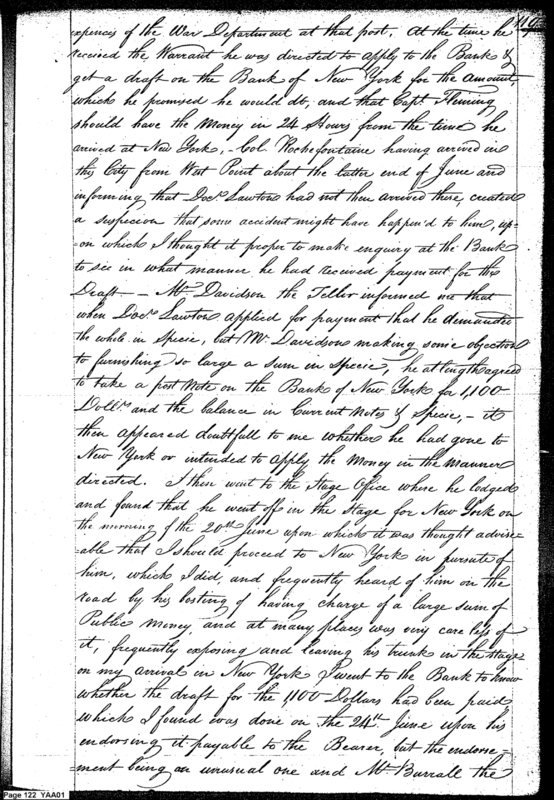 119
expences of the War Department at that post. At the time he
received the Warrant he was directed to apply to the Bank &
get a draft on the Bank of New York for the amount,
which he promised he would do, and that Capt. Fleming
should have the Money in 24 Hours from the time he
arrived at New York, - Col. Rochefontaine having arrived in
this City from West Point about the latter end of June and
informing that Doc.r Lawton had not then arrived there, created
a suspecion that some accident might have happen'd to him, up-
-on which I thought it proper to make enquiry at the Bank
to see in what manner he had received payment for this
Draft - Mr. Davidson the Teller informed me that
when Doc.r Lawton applied for payment that he demanded
the whole in Specie, but Mr Davidson making some objection
to furnishing so large a sum in Specie, he at length agreed
to take a post Note on the Bank of New York for 1,100
Doll.rs and the balance in Current Notes & Specie, - it
then appeared doubtfull to me whether he had gone to
New York or intended to apply the Money in the manner
directed. I then went to the Stage Office where he lodged
and found that he went off in the Stage for New York on
the morning of the 20th June upon which it was thought advise-
able that I should proceed to New York in pursute of
him, which I did, and frequently heard of him on the
road by his bosting of having charge of a large sum of
Public Money, and at many places was very care less of
it, frequently exposing and leaving his trunk in the stage
on my arrival in New York I went to the Bank to know
whether the draft for the 1,100 Dollars had been paid
which I found was done on the 24th June upon his
endorsing it payable to the Bearer, but the endorse-
ment being an unusual one and Mr Burrall the
Page 122 YAA01